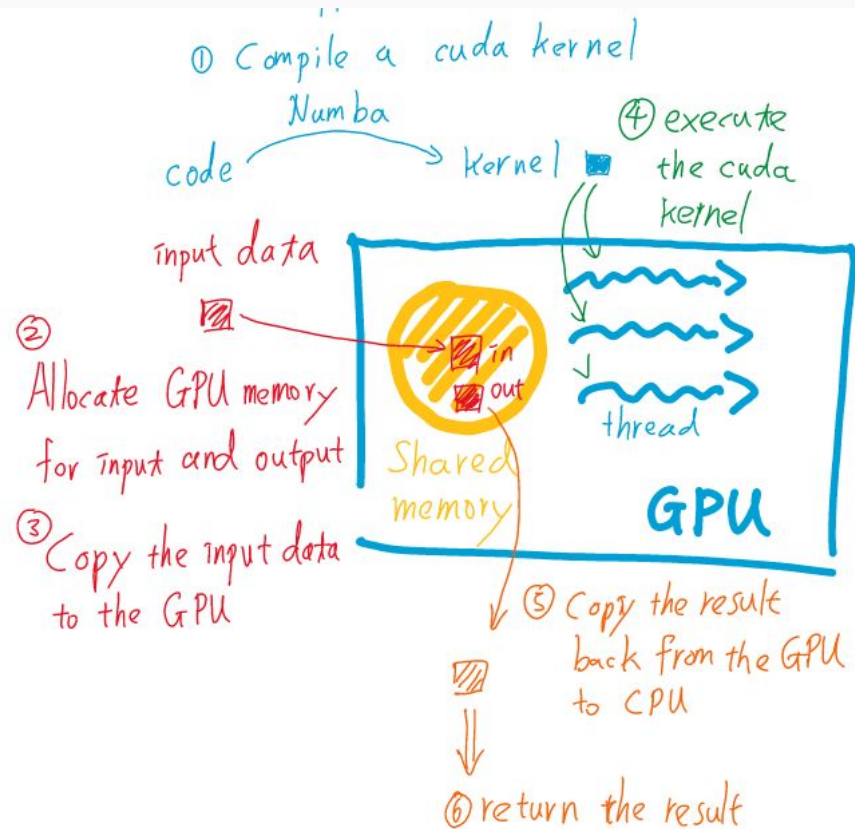 ① Compile a cuda kernel
Numba
code
kernel
④ execute
the cuda
kernel
input data
②
Allocate GPU memory
for input and output
in
out
thread
Shared
memory
GPU
③
Copy the input data
to the GPU
⑤ Copy the result
back from the GPU
to CPU
⑥ return the result